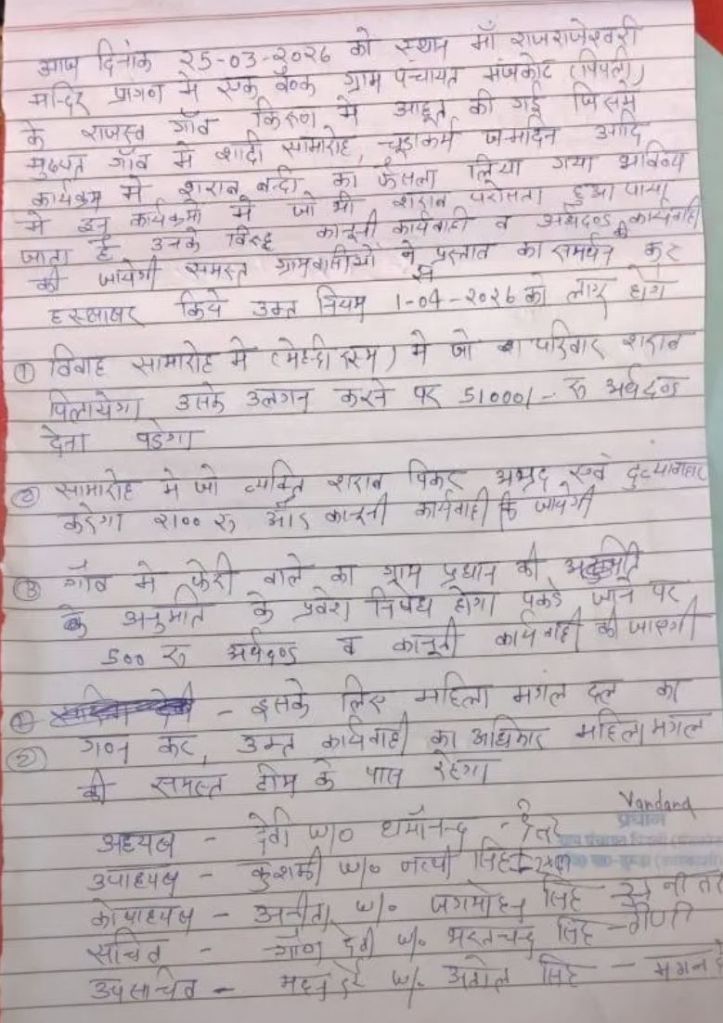 आज दिनांक 25-03-2026 को स्थान माँ राजराजेश्वरी
मन्दिर प्रागण मे एक बैठक ग्राम पंचायत मंजकोट (पिपली)
के राजस्व गाँव किरुण मे आहूत की गई जिसमे
मुख्यत गाँव मे शादी सामारोह, चूडाकर्म जन्मदिन आदि
कार्यक्रम मे शराब बन्दी का फैसला लिया गया भविष्य
मे इन कार्यक्रमो मे जो भी शराब परोसता हुआ पाया
जाता है उनके विरुद्ध कानूनी कार्यवाही व अर्थदण्ड की कार्यवाही
की जायेगी समस्त ग्रामवासीयो ने प्रस्ताव का समर्थन कर
हस्ताक्षर किये उक्त नियम 1-04-2026 से को लागू होगे
① विवाह सामारोह मे (मेहन्दी रस्म) मे जो परिवार शराब
पिलायेगा उसके उलगन करने पर 51000/- रु अर्थदण्ड
देना पडेगा
② सामारोह मे जो व्यक्ति शराब पिकर अभद्र एवं दुव्यावाहार
करेगा 2100 रु और कानूनी कार्यवाही कि जायेगी
③ गाँव मे फेरी वाले का ग्राम प्रधान की
के अनुमति के प्रवेश निषेध होगा पकडे जाने पर
500 रु अर्थदण्ड व कानूनी कार्यवाही की जाएगी
- इसके लिए महिला मगंल दल का
② गठन कर, उक्त कार्यवाही का अधिकार महिला मंगल
की समस्त टीम के पास रहेगा
Vandana
प्रधान
अध्यक्ष - देवी w/o धर्मानन्द -
उपाध्यक्ष - कुशमी w/o सिह
कोषाध्यक्ष - अनीता w/o जगमोहन सिह - सुनीता
सचिव - देवी w/o भरतचन्द सिह -
उपसचिव - w/o सिह -